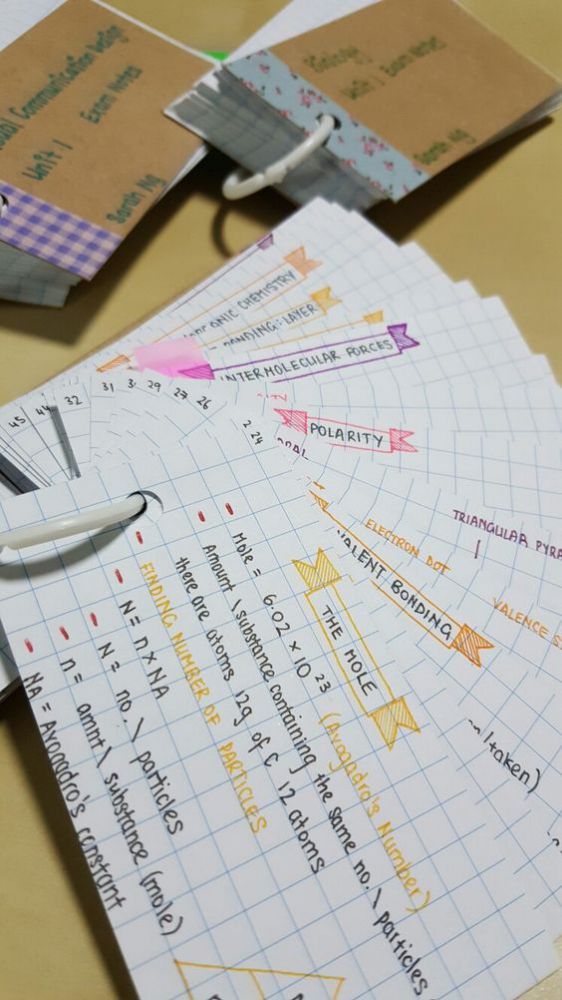 Communication Design
Unit 1 Exam Notes
Sarah Ng
Biology
Unit 1 Exam Notes
Sarah Ng
CHEMISTRY
LAYER
INTERMOLECULAR FORCES
45 44 32 31 29 27 26 24
POLARITY
TRIANGULAR
ELECTRON DOT
BONDING
VALENCE
THE MOLE
Mole = 6.02 x 10 23 (Avogadro's Number)
Amount \ substance containing the same no. \ particles
there are atoms 12g of C 12 atoms
FINDING NUMBER OF PARTICLES
N = n x NA
N = no. \ particles
n = amnt \ substance (mole)
NA = Avogadro's constant
taken)